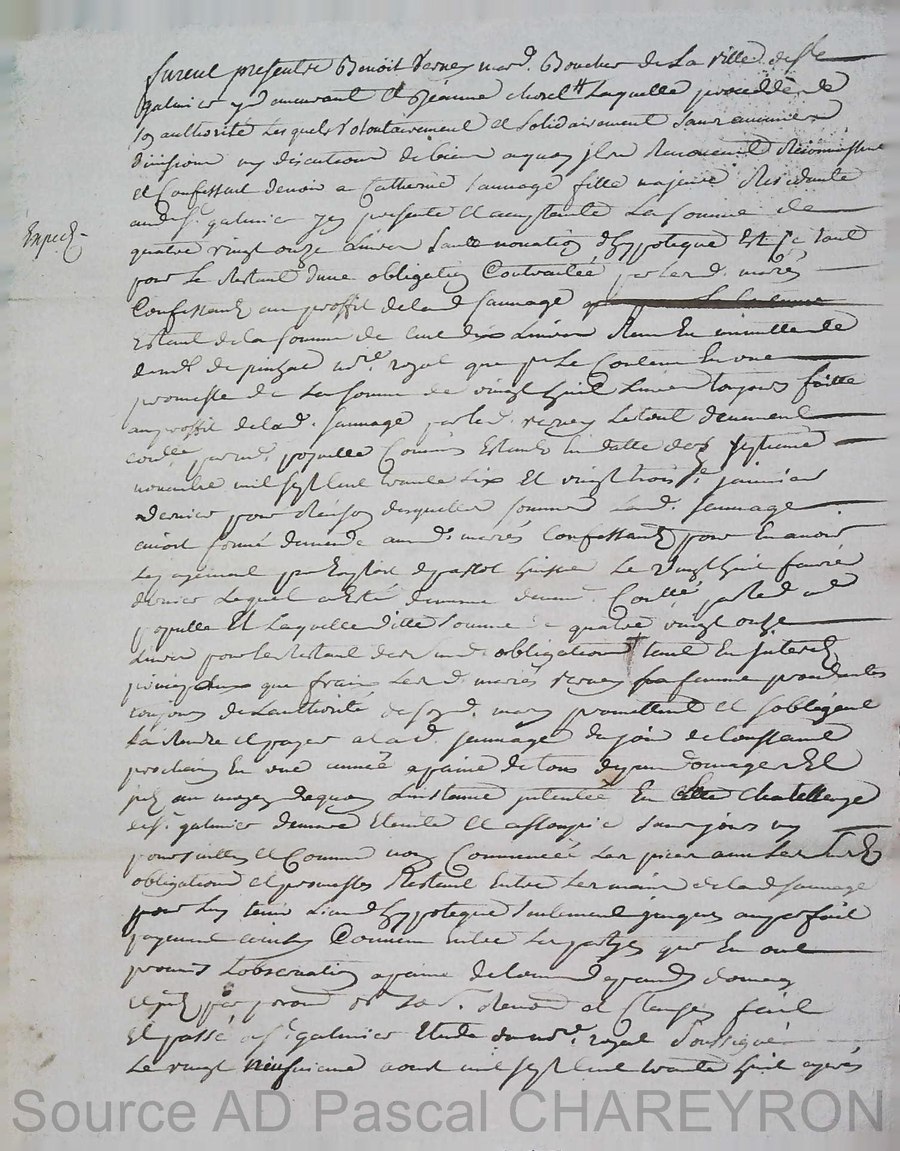 furent presents Benoit Verney mard. Boucher de La ville de St
galmier y demeurant Et Jeanne Laquelle procedde de
so authorité Lesquels volontairement et solidairement sans aucunne
division ny discution de biens a quoy jls Renoncent Reconnoissent
et Confessent devoir a Catherine Sauvage fille majeure Residante
aud. St. galmier jcy presente et acceptante La somme de
Expedé
quatre vingt onze Livres sans novation d'hypoteque Est ce tout
pour Le Restant d'une obligation Contraitée par les d. mariés
Confessants au proffit de lad. Sauvage
Estant de la somme de Cent dix Livres Receu Et
de me. de nore. royal que pr. Le Contenu En une
promesse de La somme de vingt huit Livres toujours faitte
au proffit de lad. Sauvage par led. verney Le tout deument
Conllé par md. populle Commis Estants En datte des septieme
novembre mil sept cent trante six Et vingt trois e. janvier
dernier pour Raison desquelles sommes Lad. Sauvage
auroit formé demande auxd. mariés Confessants pour En avoir
payement par Exploit de pastot huissier Le vingt huit fevrier
dernier Lequel a Esté de mesme Conllé par led. md.
populle Et Laquelle ditte somme de quatre vingt onze
Livres pour le Restant des susd. obligations tant En jnterests
que frais Les d. mariés verney sa femme procedantes
toujours de L'authorité de sond. mary promettent et s'obligent
La Rendre et payer a lad. Sauvage du jour de Constant
prochain En une année a paine de tous depans domages Et
jnts. au moyen de quoy L'instance jntentée En Cette Chatellenye
de St. galmier demeure Eteinte Et assoupie sans jours ny
poursuittes et Comme non Commencée Les pieces avec Les susd.
obligations et promesses Restent Entre Les mains de lad. Sauvage
pour Luy tenir Lieu d'hypoteque seulement jusques au parfait
payement ainsy Convenu Entre Les partyes qui En ont
promis L'observation a paine de tous depends domages
et jnts. par Renon. et Clauses fait
Et passé aud. St. galmier Etude du nore. royal soussigné
Le vingt neufvieme aout mil sept cent trante huit aprés
Source AD Pascal CHAREYRON